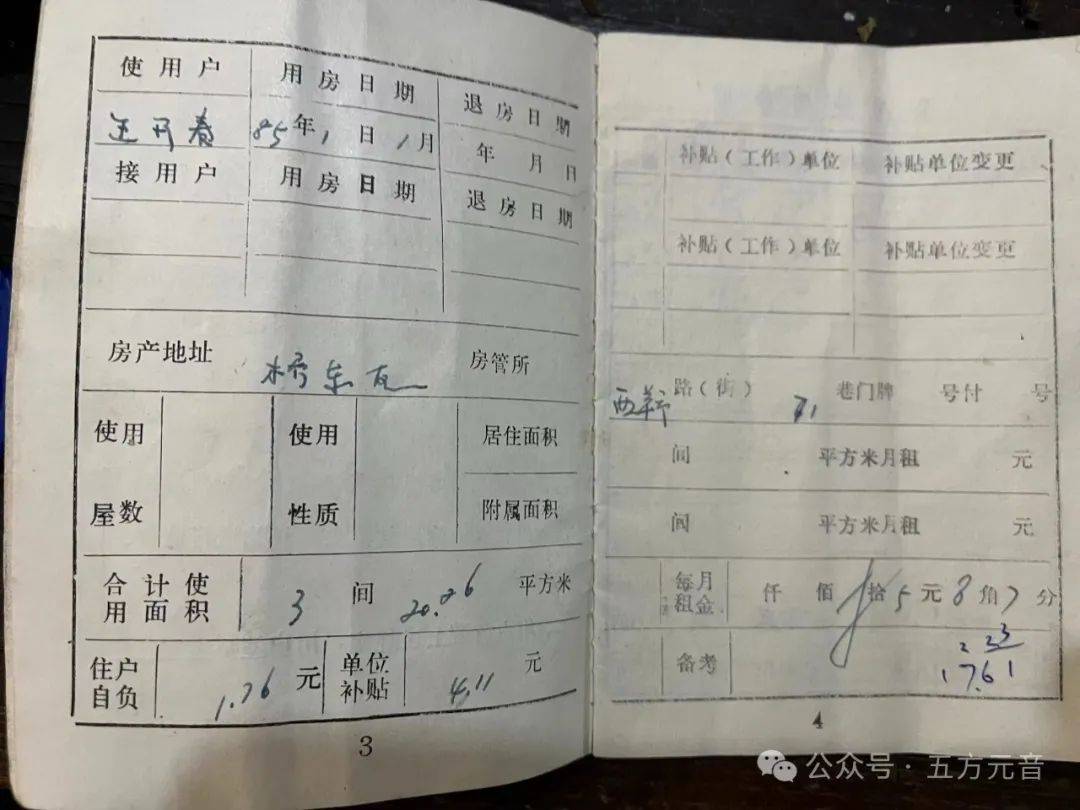 使用户 用房日期 退房日期
王开春 85年1日1月 年 月 日
接用户 用房日期 退房日期
房产地址 桥东瓦 房管所
使用屋数 使用性质 居住面积
附属面积
合计使用面积 3 间 20.26 平方米
住户自负 1.76 元 单位补贴 4.11 元
3
补贴(工作)单位 补贴单位变更
补贴(工作)单位 补贴单位变更
路(街) 71 巷门牌 号付 号
间 平方米月租 元
间 平方米月租 元
每月租金 仟 佰 拾 5 元 8 角 7 分
备考 2 33
17.61
4
公众号 · 五方元音